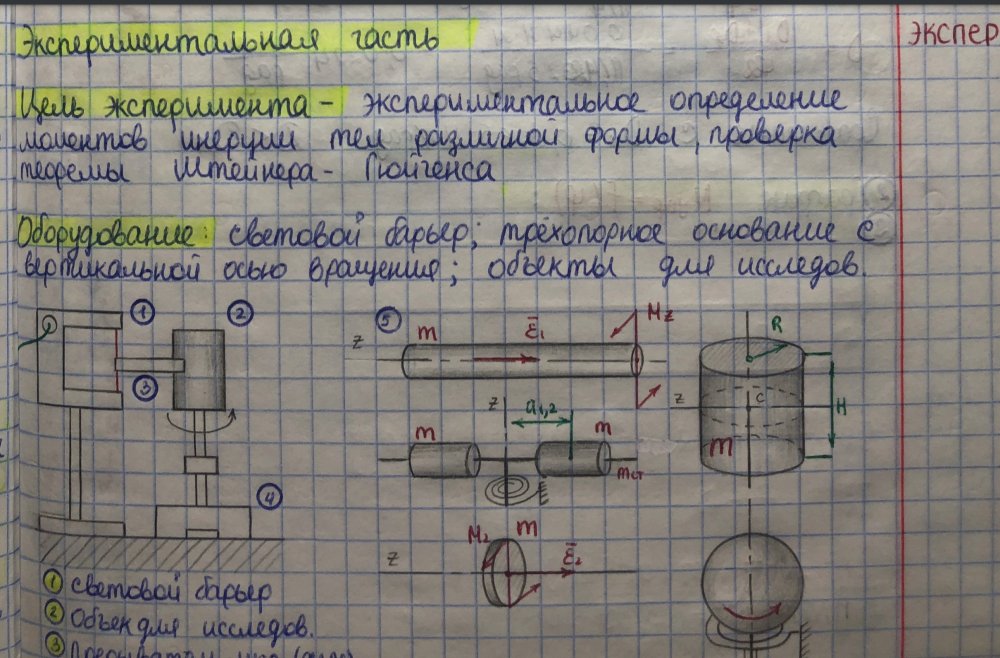 Экспериментальная часть
экспер
Цель эксперимента - экспериментальное определение
моментов инерции тел различной формы, проверка
теоремы Штейнера - Гюйгенса
Оборудование: световой барьер; трёхопорное основание с
вертикальной осью вращения; объекты для исследов.
1
2
3
4
5
z
m
ε̄₁
Mz
z
a₁,₂
m
m
mст
R
z
c
H
m
z
M₂
m
ε̄₂
① световой барьер
② Объек для исследов.
③